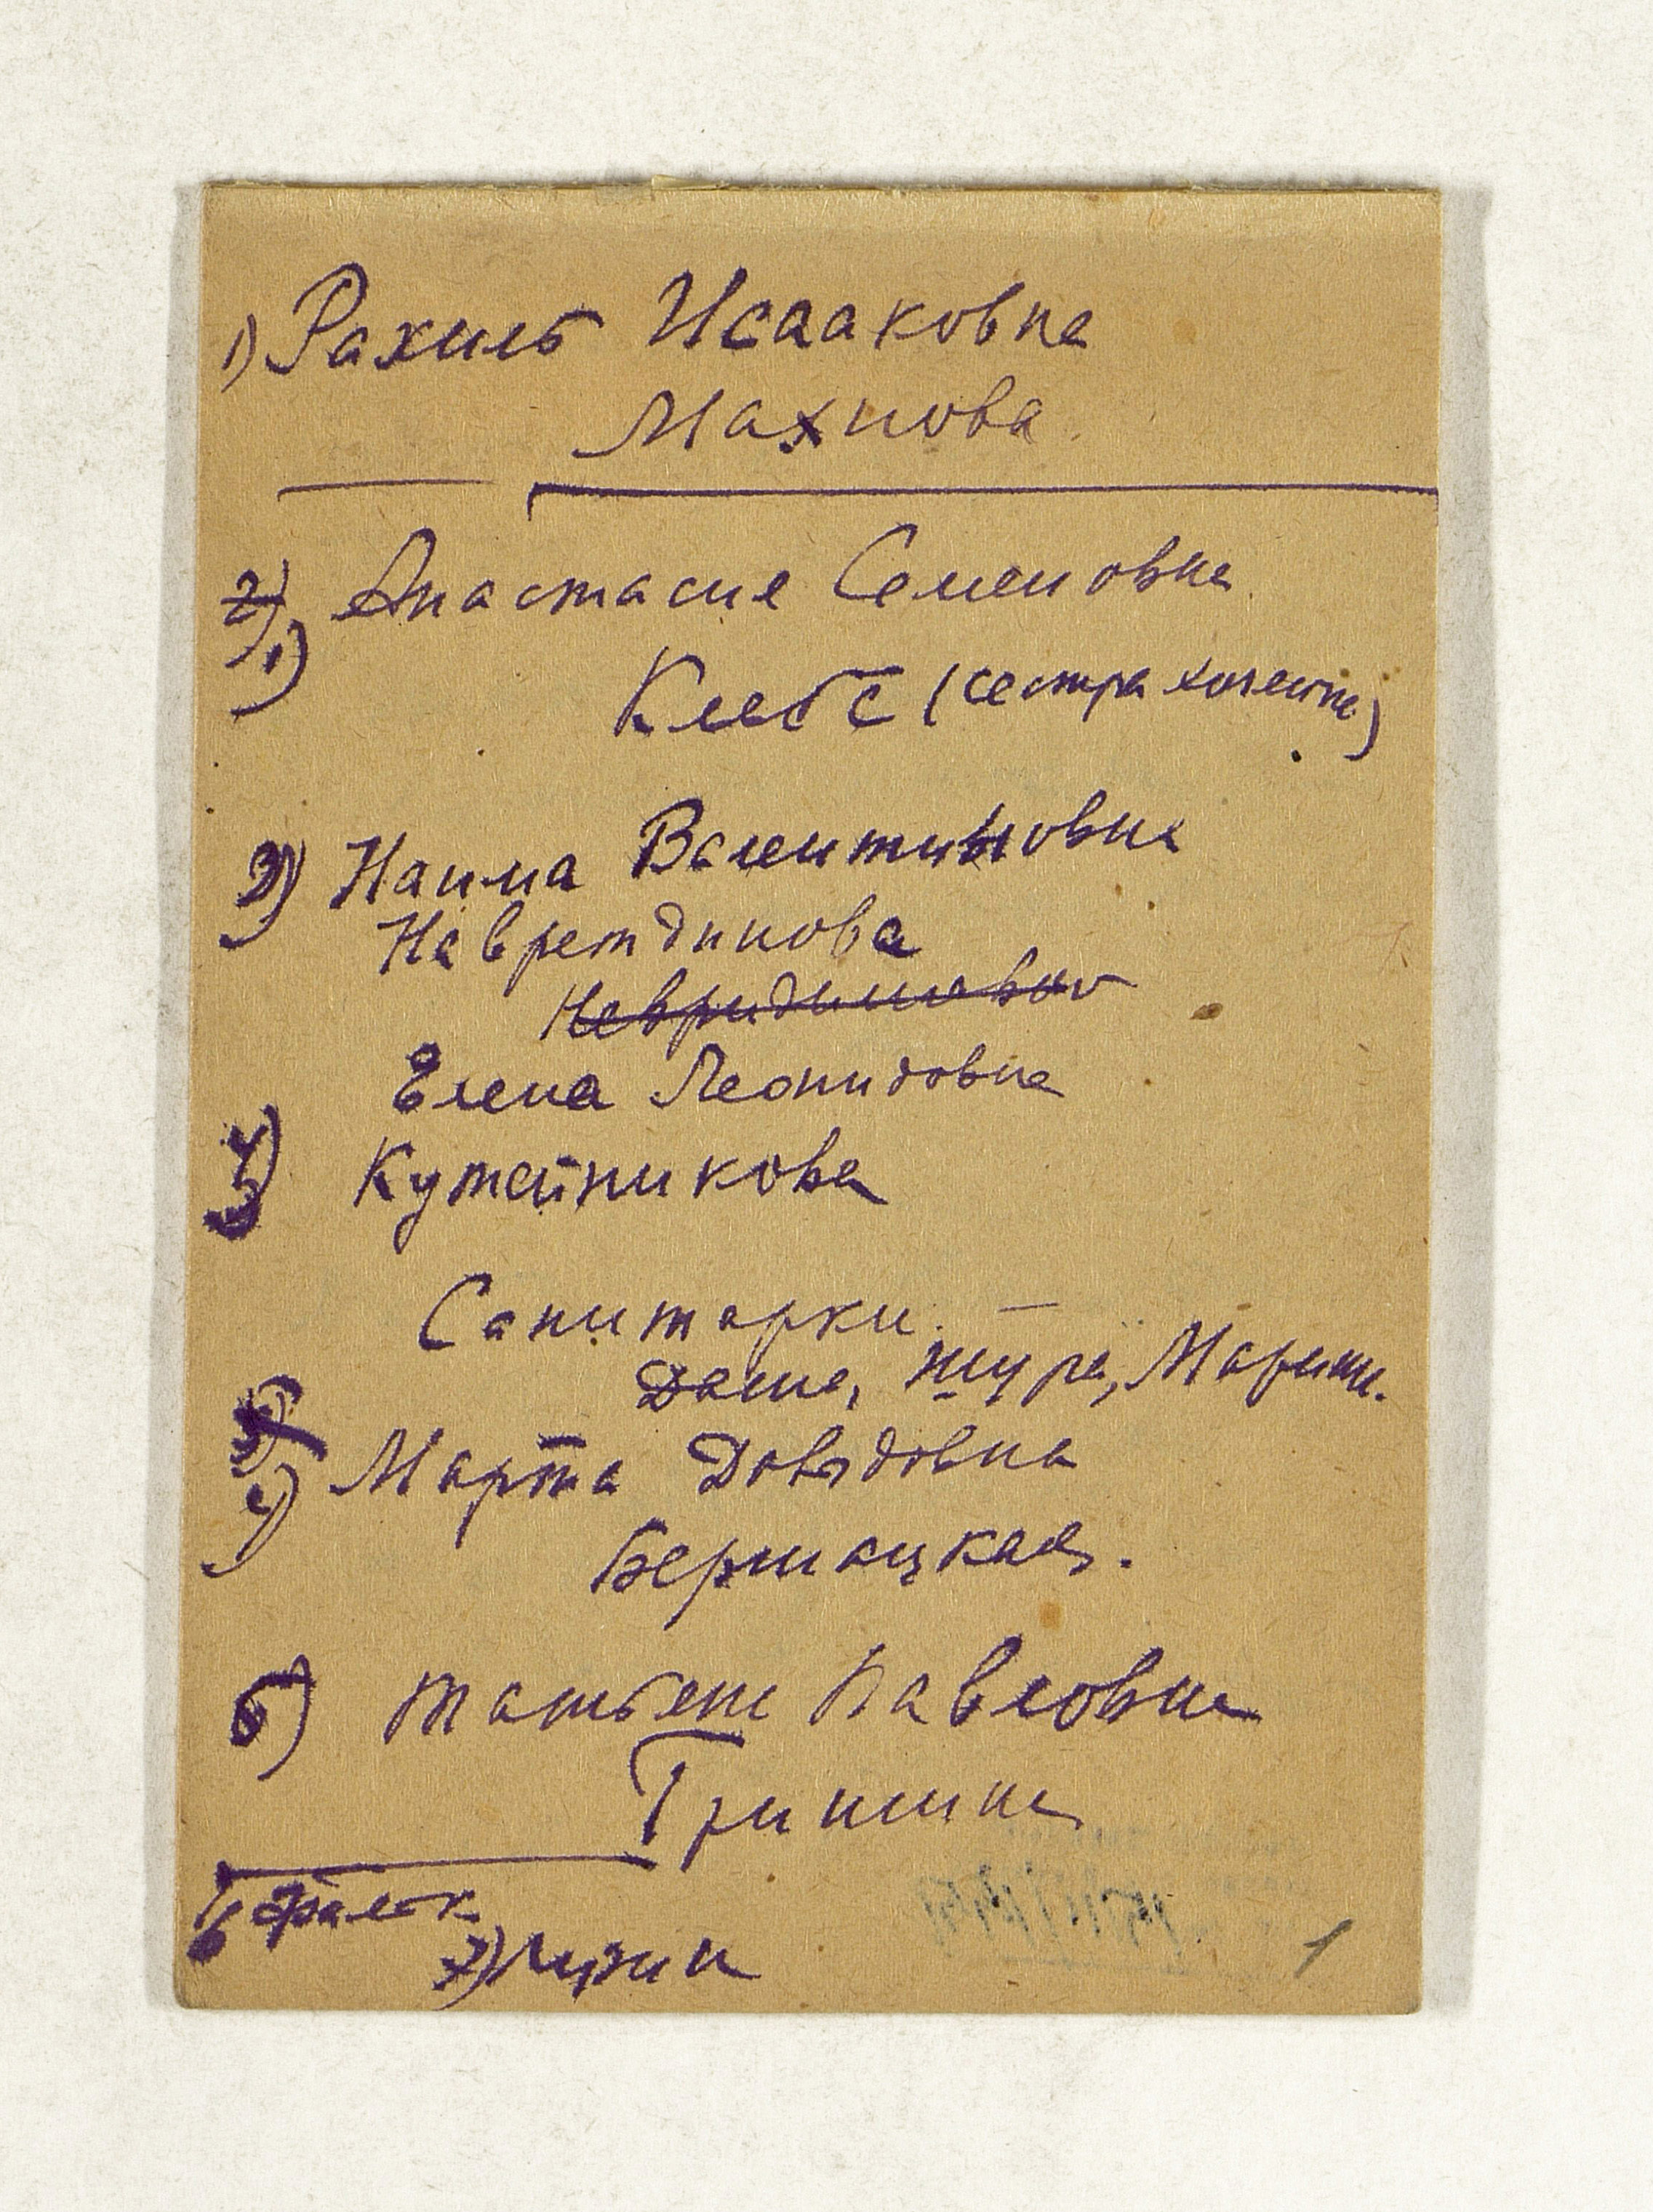 1) Рахиль Исааковна
Махнова
2) Анастасия Семеновна
1)
Клебс (сестра хозяйка)
3) Наима Валентиновна
Навретдинова
Елена Леонидовна
4) Кутейникова
Санитарки. —
Даша, Шура, Мариш.
Марта Давыдовна
Бершацкая.
5) Татьяна Павловна
Гришина
6
7)
1